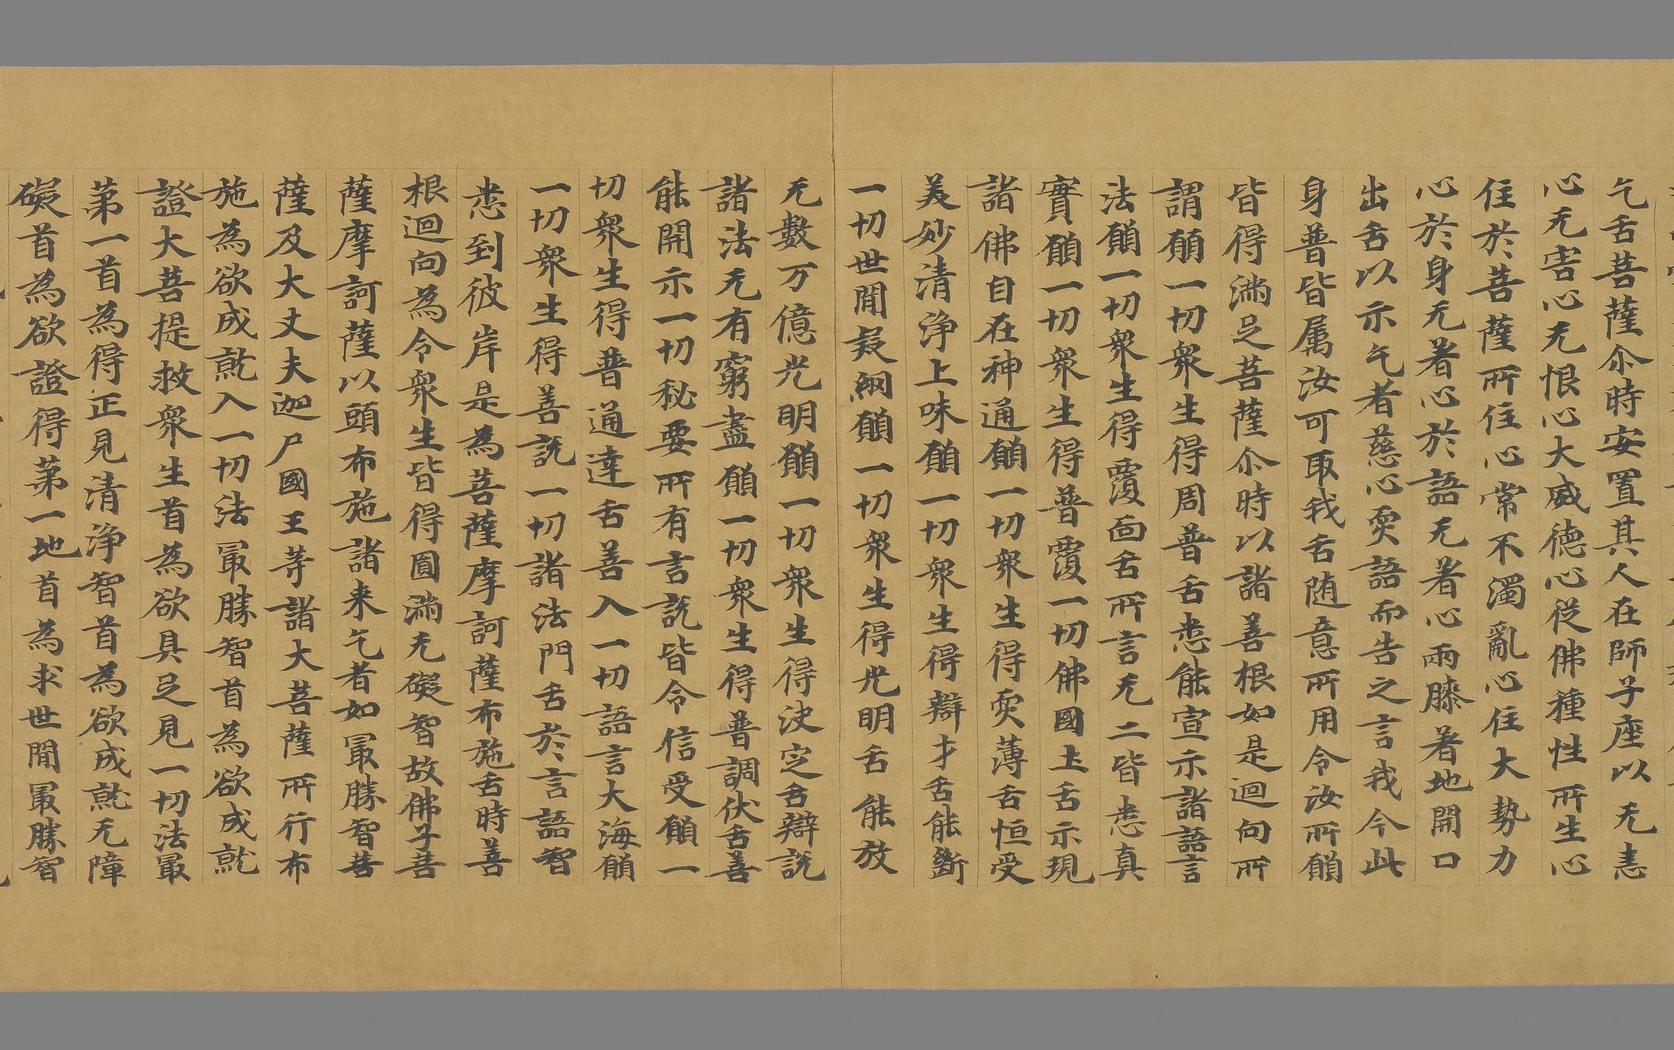 乞舌菩薩尒時安置其人在師子座以无恚
心无害心无恨心大威德心從佛種性所生心
住於菩薩所住心常不濁亂心住大勢力
心於身无著心於語无著心兩膝著地開口
出舌以示乞者慈心耎語而告之言我今此
身普皆属汝可取我舌随意所用令汝所願
皆得滿足菩薩尒時以諸善根如是迴向所
謂願一切衆生得周普舌悉能宣示諸語言
法願一切衆生得覆面舌所言无二皆悉真
實願一切衆生得普覆一切佛國土舌示現
諸佛自在神通願一切衆生得耎薄舌恒受
美妙清淨上味願一切衆生得辯才舌能斷
一切世間疑網願一切衆生得光明舌能放
无數万億光明願一切衆生得決定舌辯説
諸法无有窮盡願一切衆生得普調伏舌善
能開示一切秘要所有言説皆令信受願一
切衆生得普通達舌善入一切語言大海願
一切衆生得善説一切諸法門舌於言語智
悉到彼岸是為菩薩摩訶薩布施舌時善
根迴向為令衆生皆得圓滿无礙智故佛子菩
薩摩訶薩以頭布施諸来乞者如最勝智菩
薩及大丈夫迦尸國王等諸大菩薩所行布
施為欲成就入一切法最勝智首為欲成就
證大菩提救衆生首為欲具足見一切法最
第一首為得正見清淨智首為欲成就无障
礙首為欲證得第一地首為求世間最勝智